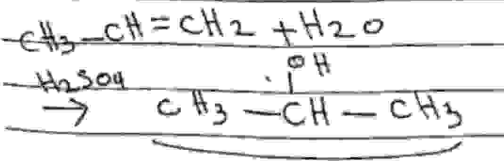 CH3-CH=CH2 + H2O
OH
H2SO4
→ CH3-CH-CH3